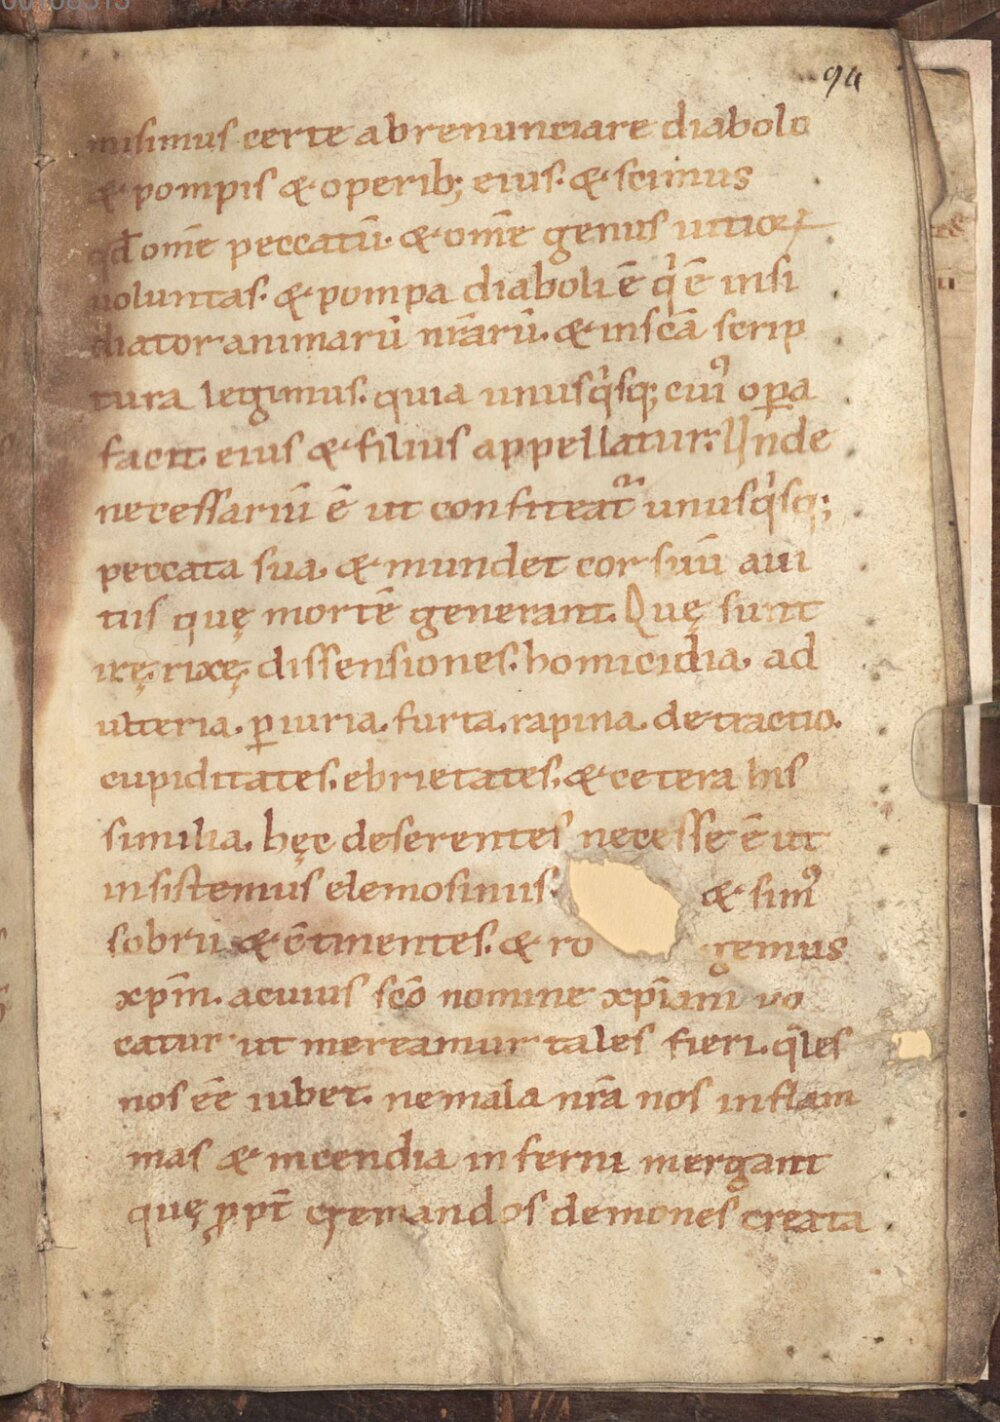 94
misimus certe abrenunciare diabolo
& pompis & operib; eius. & scimus
qđ om̄e peccatū. & om̄e genus uitioꝝ
uoluntas. & pompa diaboli ē qͥ ē insi
diator animarū nr̄arū. & in scā scrip
tura legimus. quia unusqͥsq; cuiꝰ oꝑa
facit. eius & filius appellatur. Unde
necessariū ē ut confiteat᷑ unusqͥsq;
peccata sua. & mundet cor suū a ui
tiis quę mortē generant. Quę sunt
irę. rixę. dissensiones. homicidia. ad
ulteria. ꝑiuria. furta. rapina. detractio.
cupiditates. ebrietates. & cetera his
similia. hęc deserentes necesse ē ut
insistemus elemosinis. & simꝰ
sobrii & c̄tinentes. & ro gemus
xp̄m. a cuius scō nomine xp̄iani uo
catur ut mereamur tales fieri. qͣles
nos ēē iubet. ne mala nr̄a nos in flam
mas & incendia inferni mergant
quę ꝓpt̄ cremandos demones creata